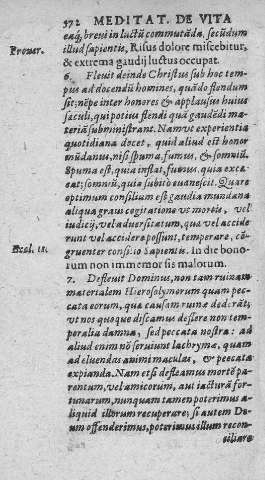 572 MEDITAT. DE VITA
eaq́, breui in luctū commutāda, secūdum
Prouer. illud sapientis, Risus dolore miscebitur,
& extrema gaudij luctus occupat.
6. Fleuit deinde Christus sub hoc tem-
pus ad docendū homines, quādo flendum
sit; nēpe inter honores & applausus huius
sæculi, qui potius flendi quā gaudēdi ma-
teriā subministrant. Nam vt experientia
quotidiana docet, quid aliud est honor
mūdanus, nisi spuma, fumus, & somniū.
Spuma est, quia inflat, fumus, quia excæ-
cat; somniū, quia subito euanescit. Quare
optimum consilium est gaudia mundana
aliqua graui cogitatione vt mortis, vel
iudicij, vel aduersitatum, quæ vel accide
runt vel accidere possunt, temperare, cō-
Eccl. 11. gruenter consilio sapientis. In die bono-
rum non immemor sis malorum.
7. Defleuit Dominus, non tam ruinam
materialem Hierosolymorum quam pec-
cata eorum, quæ causam ruinæ dederāt;
vt nos quoque discamus deflere non tem-
poralia damna, sed peccata nostra: ad
aliud enim nō seruiunt lachrymæ, quam
ad eluendas animi maculas, & peccata
expianda. Nam etsi defleamus mortē pa-
rentum, vel amicorum, aut iacturā for-
tunarum, nunquam tamen poterimus a-
liquid illorum recuperare; si autem De-
um offenderimus, poterimus illum recon-
ciliare